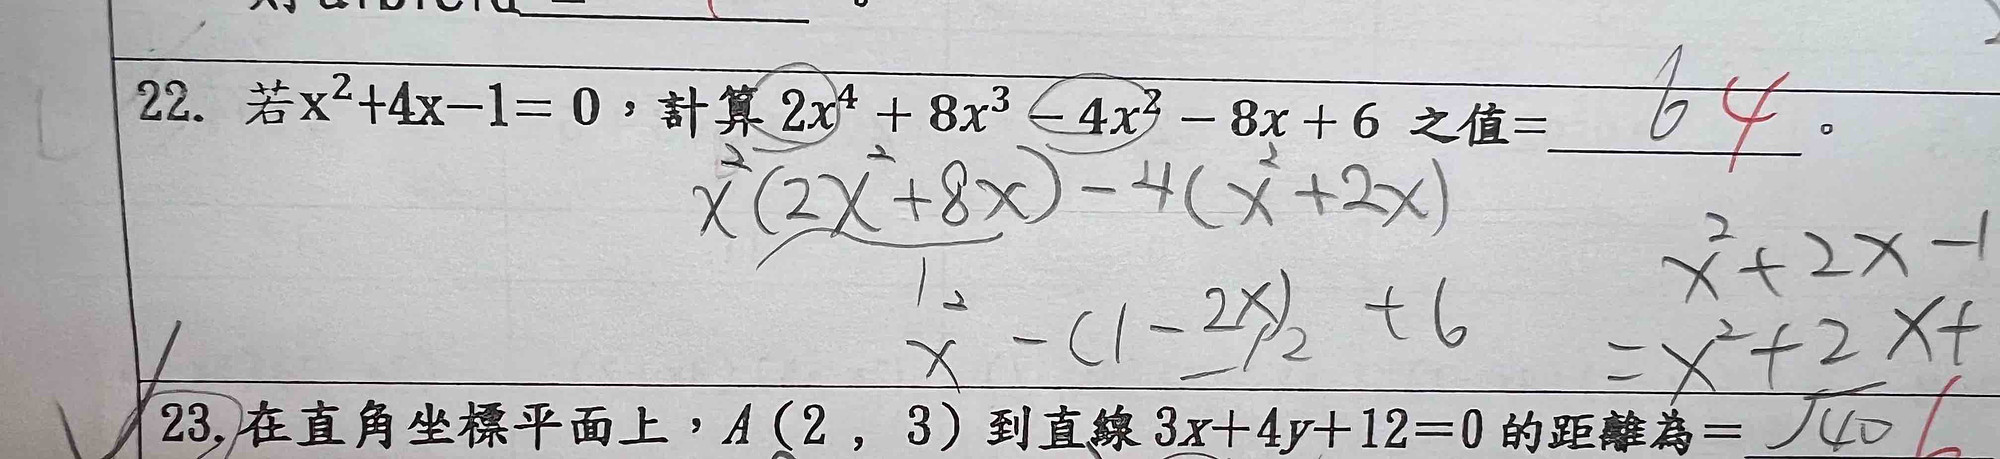 22. 若x²+4x−1= 0，計算 2x⁴ + 8x³ − 4x² − 8x + 6 之值= 6 4 。
x²(2x²+8x)−4(x²+2x)
x²+2x−1
x² −(1−2x)2 +6
=x²+2x+
23. 在直角坐標平面上，A（2 , 3）到直線 3x+4y+12=0 的距離為= √40 6